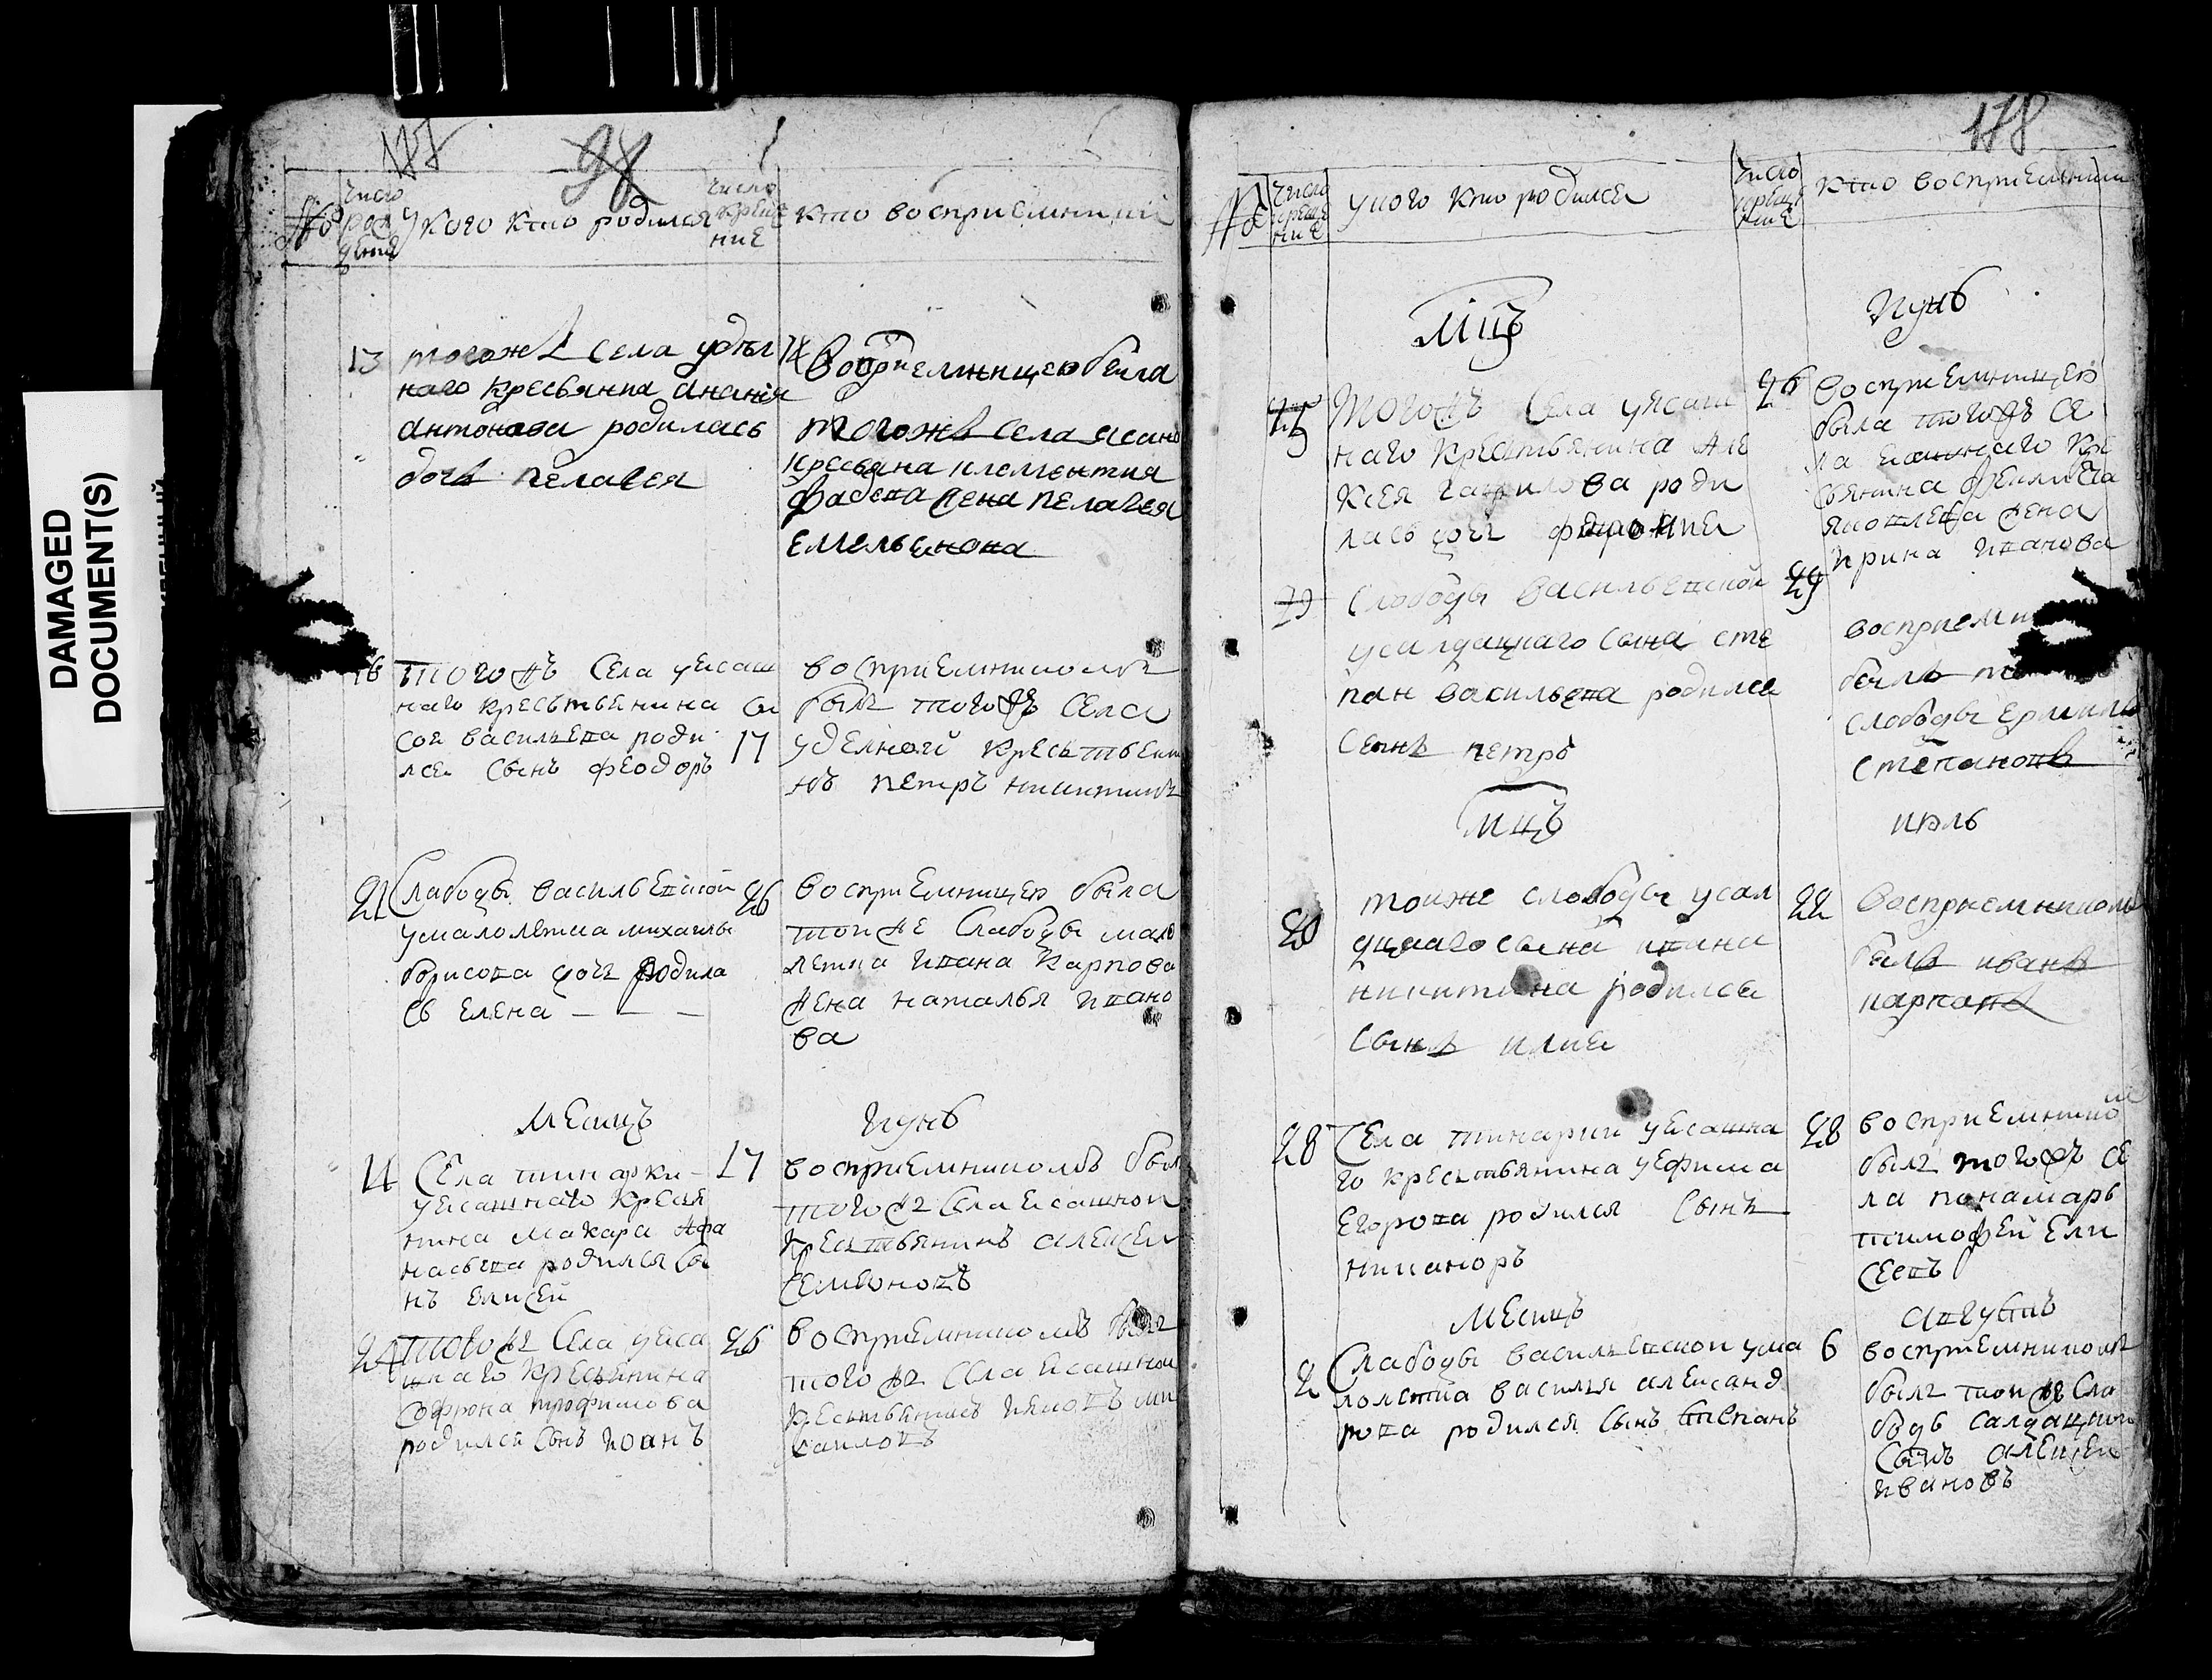 DAMAGED
DOCUMENT(S)
98
178
число
рож
дения
У кого кто родился
число
креще
ние
кто восприемники
13
тогожъ села удел
наго кресьянина анания
антонова родилась
дочь пелагея
14
восприемницею была
тогожъ села ясашн
кресьяна клементия
жена пелагея
емельенова
16
тогожъ села у ясаш
наго кресьтьянина
василева роди
лся сынъ феодоръ
17
восприемникомъ
былъ тогожъ села
уделной кресьтьяни
нъ петръ никитинъ
21
Слабоды васильевской
у малолетка михаилы
борисова дочь родила
сь елена — — —
26
восприемницею была
тоиже слабоды мало
летка ивана карпова
жена наталья ивано
ва
месяцъ
июнь
14
Села тинарки
у ясашнаго кресья
нина макара афа
насьева родился сы
нъ елисей
17
восприемникомъ был
тогожъ села ясашнои
кресьтьянинъ алексеи
семионовъ
24
тогожъ села у яса
шнаго кресьянина
софрона трофимова
родился сынъ иоанъ
26
восприемникомъ былъ
тогожъ села ясашнои
кресьтьянинъ яковъ ми
хаиловъ
число
креще
ние
у кого кто родился
число
креще
ние
кто восприемники
мцъ
июнь
25
тогожъ села у ясаш
наго кресьтьянина але
ксея гаврилова роди
лась дочь
26
восприемницею
была тогожъ се
ла ясашнаго кре
сьянина
яковлева жена
ирина иванова
29
Слободы васильевской
у салдацкаго сына сте
пан васильева родился
сынъ петръ
29
восприемни
былъ то
слободы
степановъ
мцъ
июль
20
тоиже слободы у сал
дцкаго сына ивана
никитина родился
сынъ илия
22
восприемникомъ
былъ иванъ
карповъ
28
Села тинарки у ясашна
го кресьтьянина уефима
егорова родился сынъ
никаноръ
28
восприемникомъ
былъ тогожъ се
ла панамарь
тимофей ели
сеевъ
месяцъ
августъ
2
Слабоды васильевскои у ма
лолетка василья александ
рова родился сынъ степанъ
6
восприемникомъ
былъ тоижъ сла
бодь салдацкои
сынъ алексеи
ивановъ